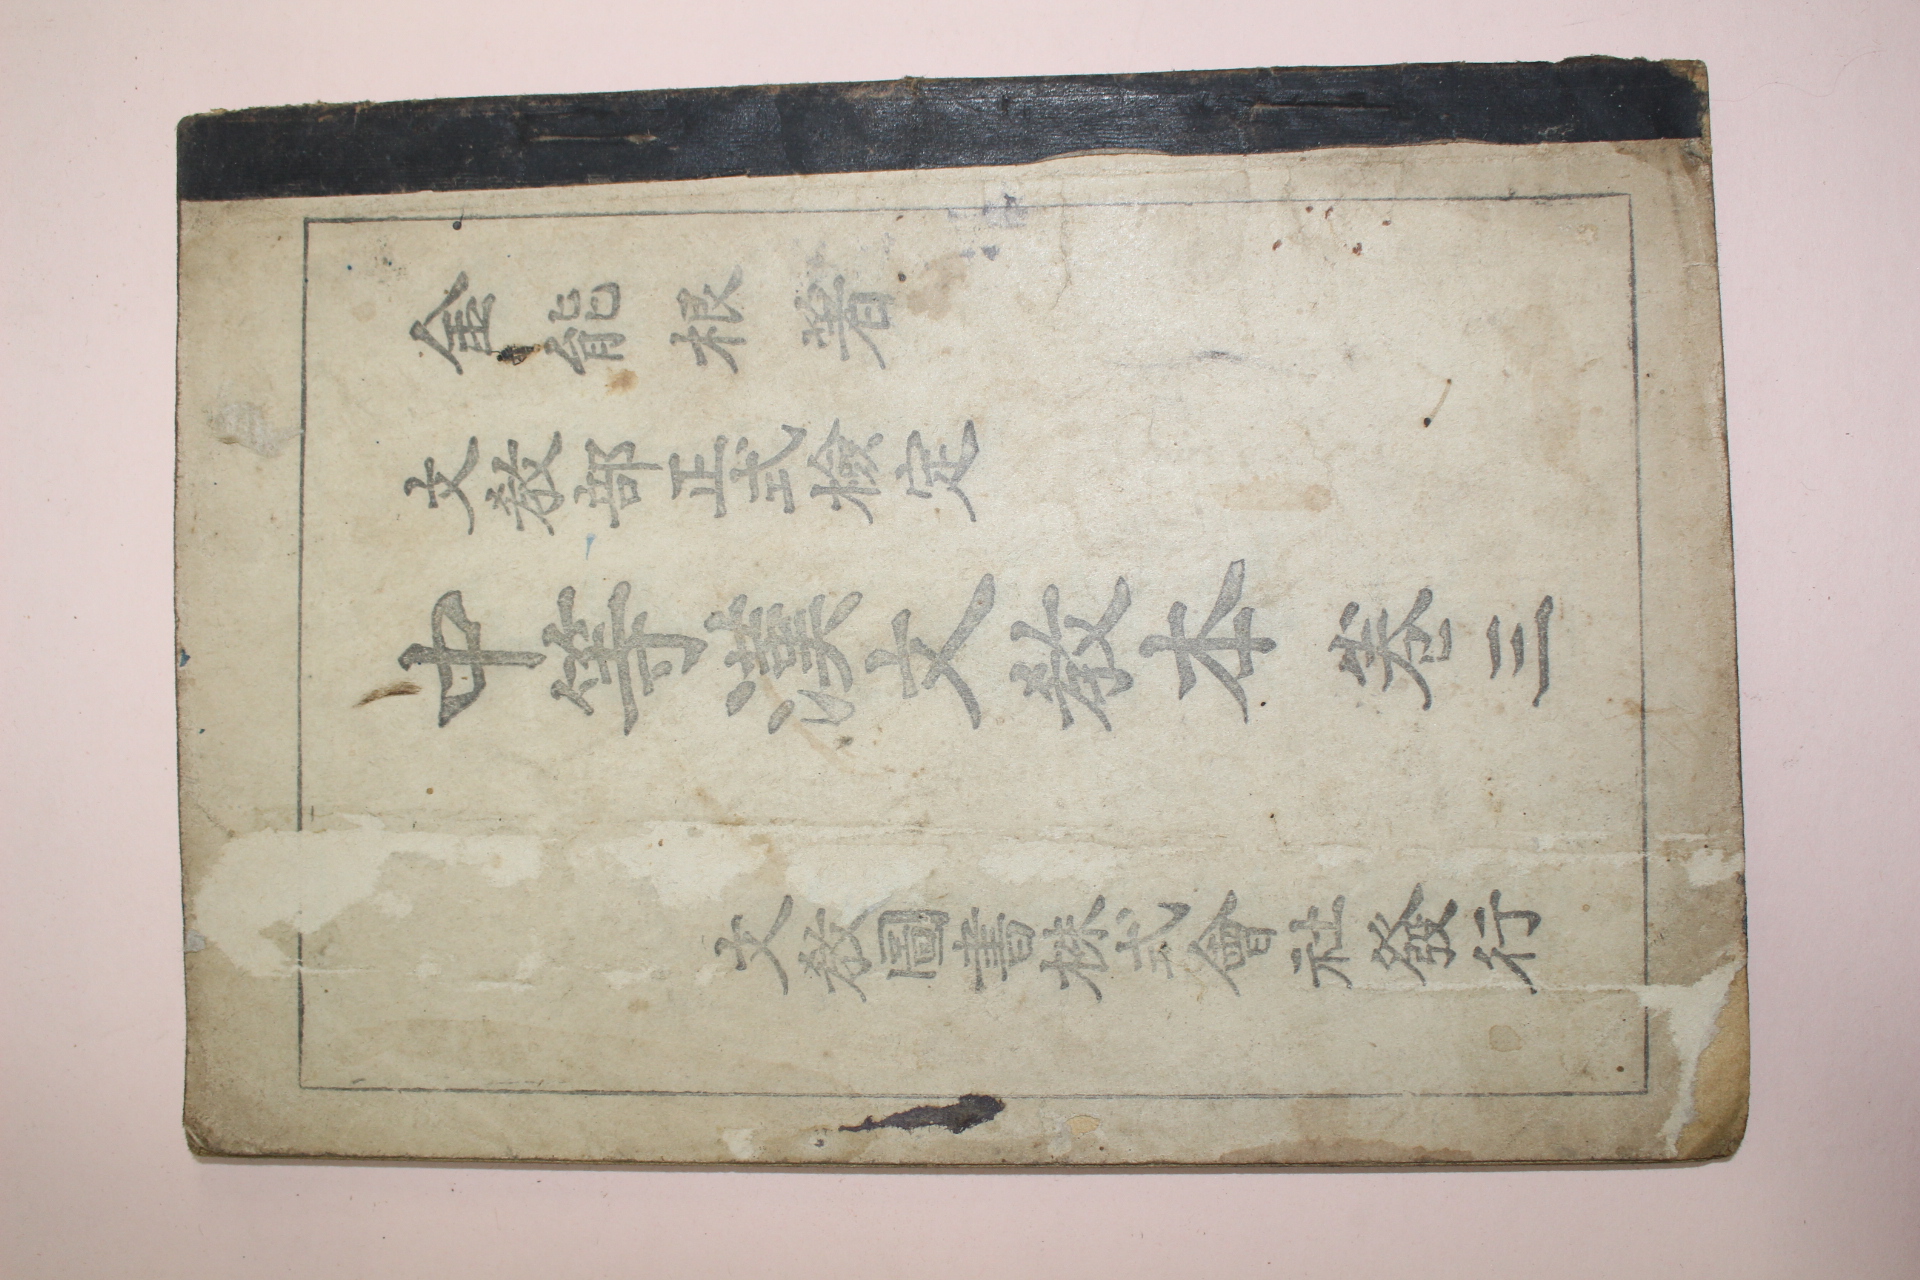 金能根著
文敎部正式檢定
中等漢文敎本 卷三
文敎圖書株式會社發行